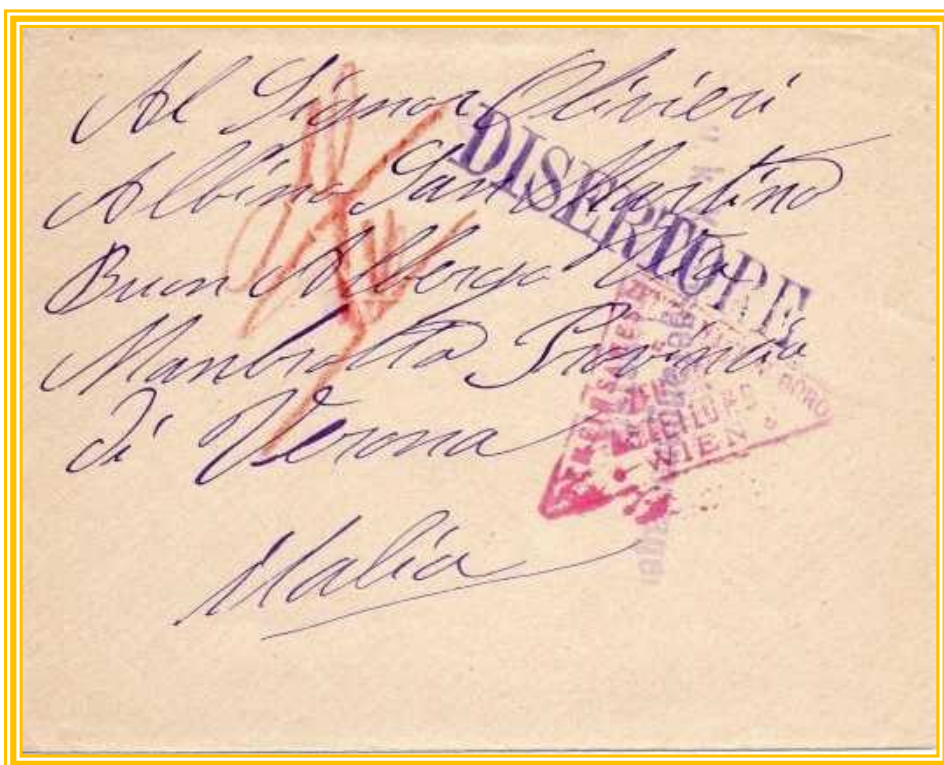 Al Signor Olivieri
Albino San Martino
Buon Albergo Via
Mambrotta Provincia
di Verona
Italia
DISERTORE
WIEN